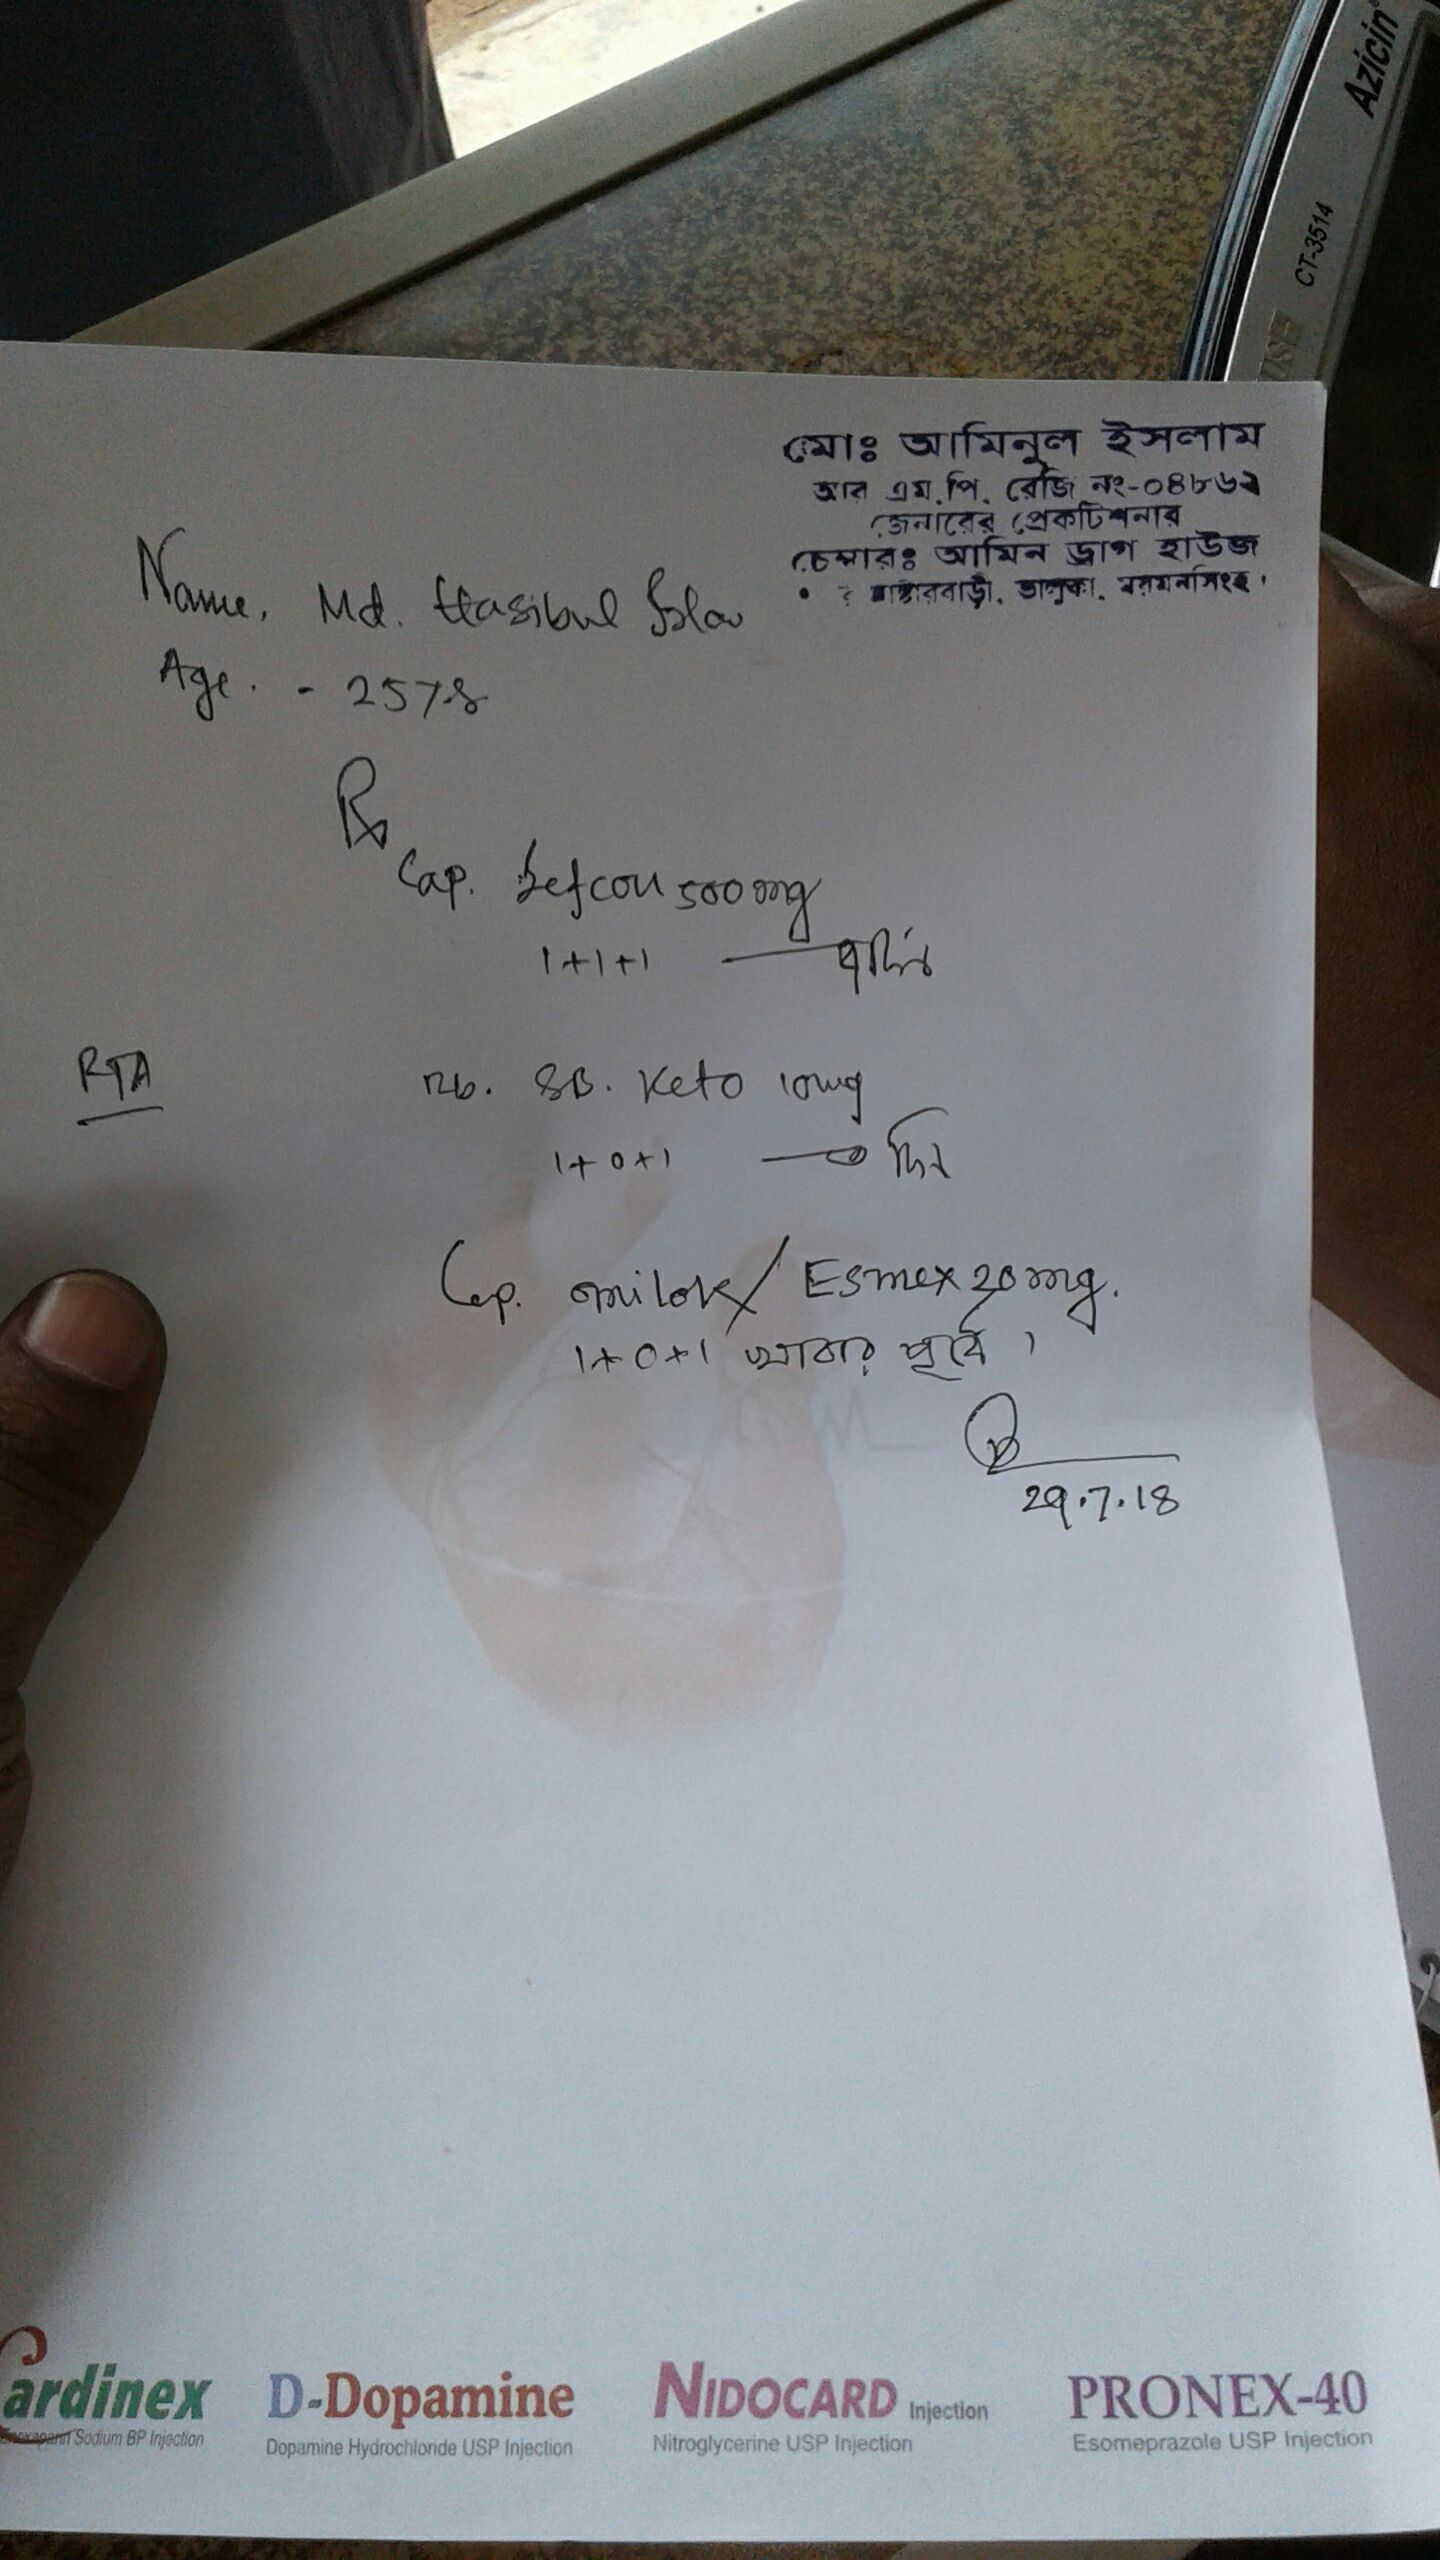 Azicin
CT-3514
মোঃ আমিনুল ইসলাম
আর এম.পি. রেজি নং-০৪৮৬২
জেনারেল প্রেকটিশনার
চেম্বারঃ আমিন ড্রাগ হাউজ
মাষ্টারবাড়ী, ভালুকা, ময়মনসিংহ।
Name. Md. Hasibul
Age. - 25
Rx
Cap. 500 mg
1+1+1
RTA
SB. Keto 10mg
1+0+1 দিন
Cap. omilok/ Esmex 20 mg.
1+0+1 খাবার পূর্বে।
29.7.18
ardinex
Sodium BP Injection
D-Dopamine
Dopamine Hydrochloride USP Injection
NIDOCARD Injection
Nitroglycerine USP Injection
PRONEX-40
Esomeprazole USP Injection